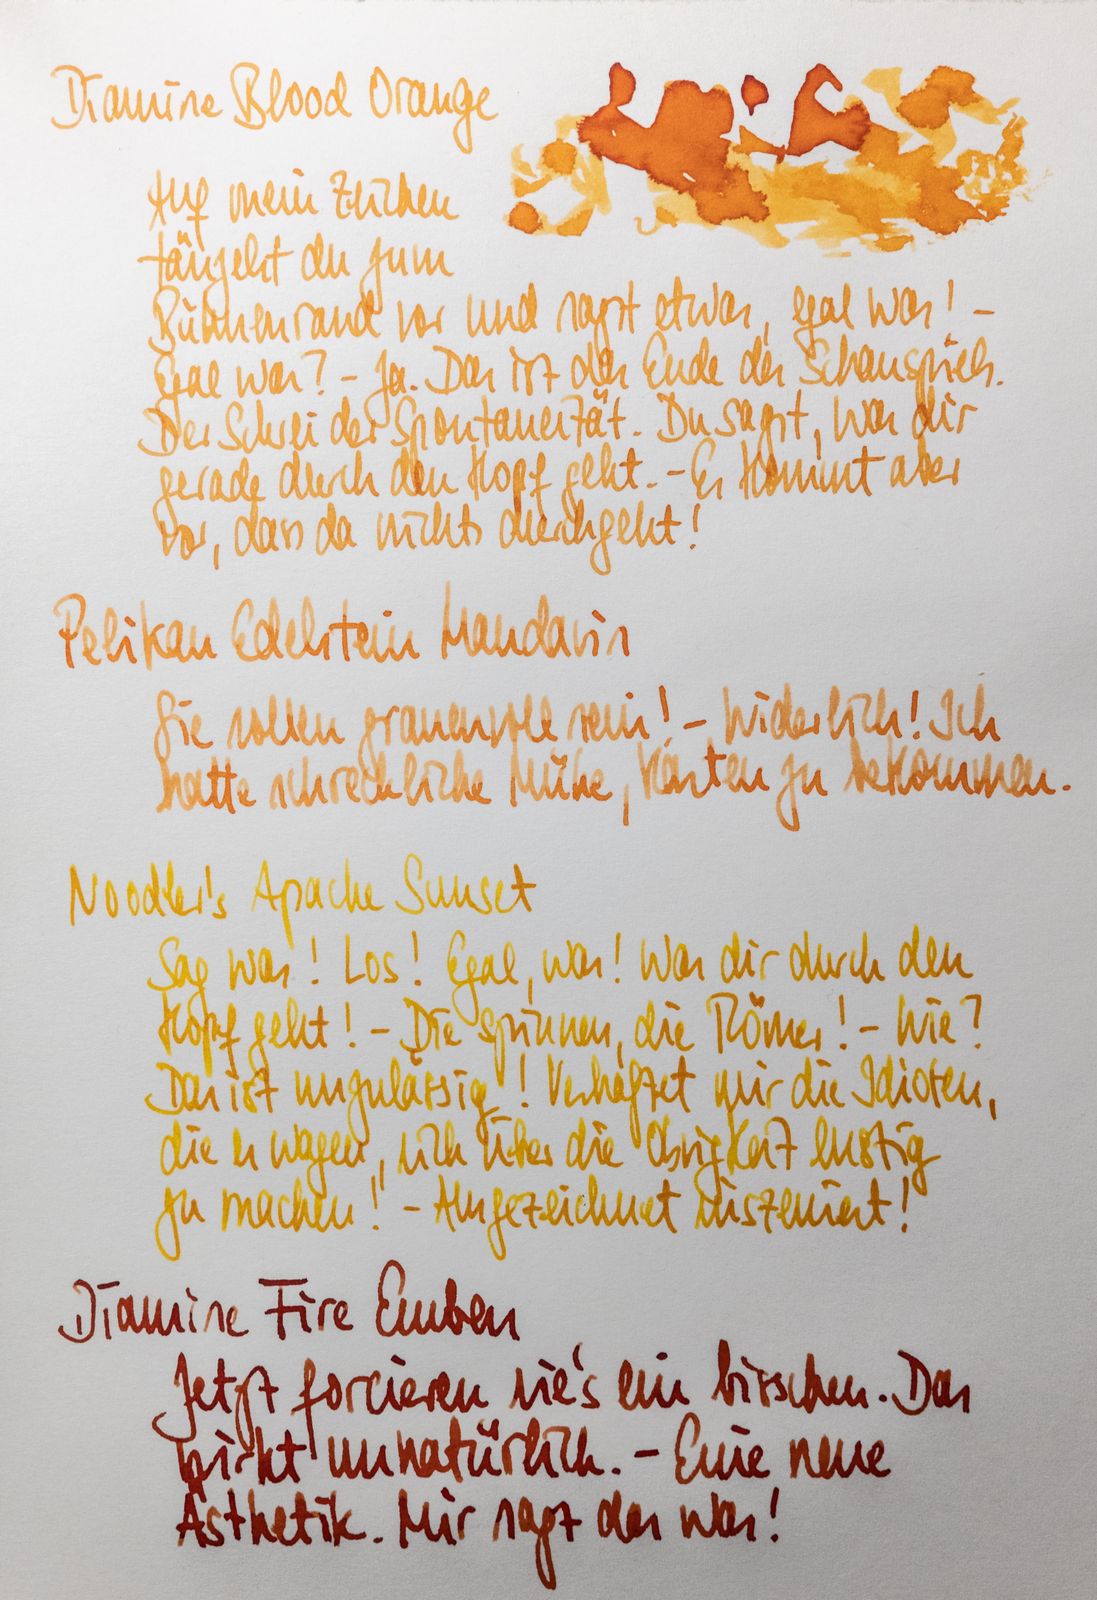 Diamine Blood Orange
Auf mein Zeichen
tänzelst du zum
Bühnenrand vor und sagst etwas, egal was! –
Egal was? – Ja. Das ist das Ende des Schauspiels.
Der Schrei der Spontaneität. Du sagst, was dir
gerade durch den Kopf geht. – Es kommt aber
vor, dass da nichts durchgeht!
Pelikan Edelstein Mandarin
Sie sollen grauenvoll sein! – Widerlich! Ich
hatte schreckliche Mühe, Karten zu bekommen.
Noodler's Apache Sunset
Sag was! Los! Egal, was! Was dir durch den
Kopf geht! – Die spinnen, die Römer! – Wie?
Das ist unzulässig! Verhaftet mir die Idioten,
die es wagen, sich über die Obrigkeit lustig
zu machen! – Ausgezeichnet inszeniert!
Diamine Fire Embers
Jetzt forcieren sie's ein bisschen. Das
wirkt unnatürlich. – Eine neue
Ästhetik. Mir sagt das was!